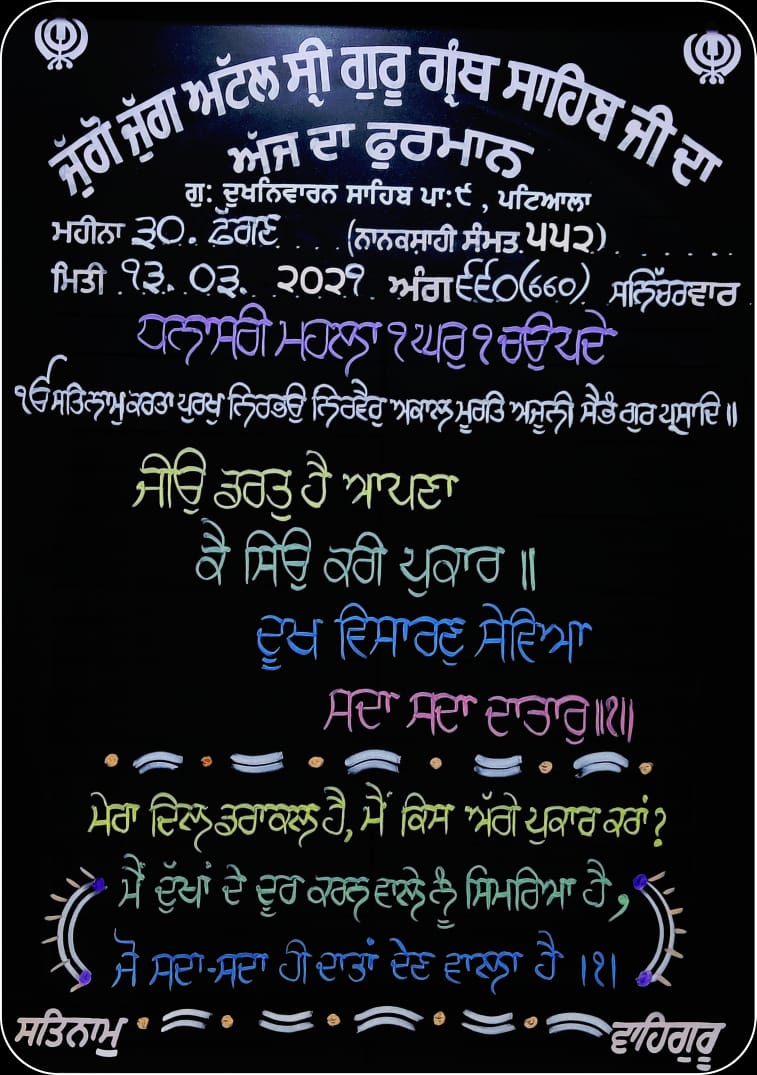 ਜੁੱਗੋ ਜੁੱਗ ਅੱਟਲ ਸ੍ਰੀ ਗੁਰੂ ਗ੍ਰੰਥ ਸਾਹਿਬ ਜੀ ਦਾ
ਅੱਜ ਦਾ ਫੁਰਮਾਨ
ਗੁ: ਦੁਖਨਿਵਾਰਨ ਸਾਹਿਬ ਪਾ:੯ , ਪਟਿਆਲਾ
ਮਹੀਨਾ ੩੦. ਫੱਗਣ (ਨਾਨਕਸ਼ਾਹੀ ਸੰਮਤ ੫੫੨)
ਮਿਤੀ ੧੩. ੦੩. ੨੦੨੧ ਅੰਗ ੬੬੦(660) ਸਨਿੱਚਰਵਾਰ
ਧਨਾਸਰੀ ਮਹਲਾ ੧ ਘਰੁ ੧ ਚਉਪਦੇ
ੴ ਸਤਿਨਾਮੁ ਕਰਤਾ ਪੁਰਖੁ ਨਿਰਭਉ ਨਿਰਵੈਰੁ ਅਕਾਲ ਮੂਰਤਿ ਅਜੂਨੀ ਸੈਭੰ ਗੁਰ ਪ੍ਰਸਾਦਿ ॥
ਜੀਉ ਡਰਤੁ ਹੈ ਆਪਣਾ
ਕੈ ਸਿਉ ਕਰੀ ਪੁਕਾਰ ॥
ਦੂਖ ਵਿਸਾਰਣੁ ਸੇਵਿਆ
ਸਦਾ ਸਦਾ ਦਾਤਾਰੁ ॥੧॥
ਮੇਰਾ ਦਿਲ ਡਰਾਕਲ ਹੈ, ਮੈਂ ਕਿਸ ਅੱਗੇ ਪੁਕਾਰ ਕਰਾਂ?
ਮੈਂ ਦੁੱਖਾਂ ਦੇ ਦੂਰ ਕਰਨ ਵਾਲੇ ਨੂੰ ਸਿਮਰਿਆ ਹੈ,
ਜੋ ਸਦਾ-ਸਦਾ ਹੀ ਦਾਤਾਂ ਦੇਣ ਵਾਲਾ ਹੈ ।੧।
ਸਤਿਨਾਮੁ ਵਾਹਿਗੁਰੂ